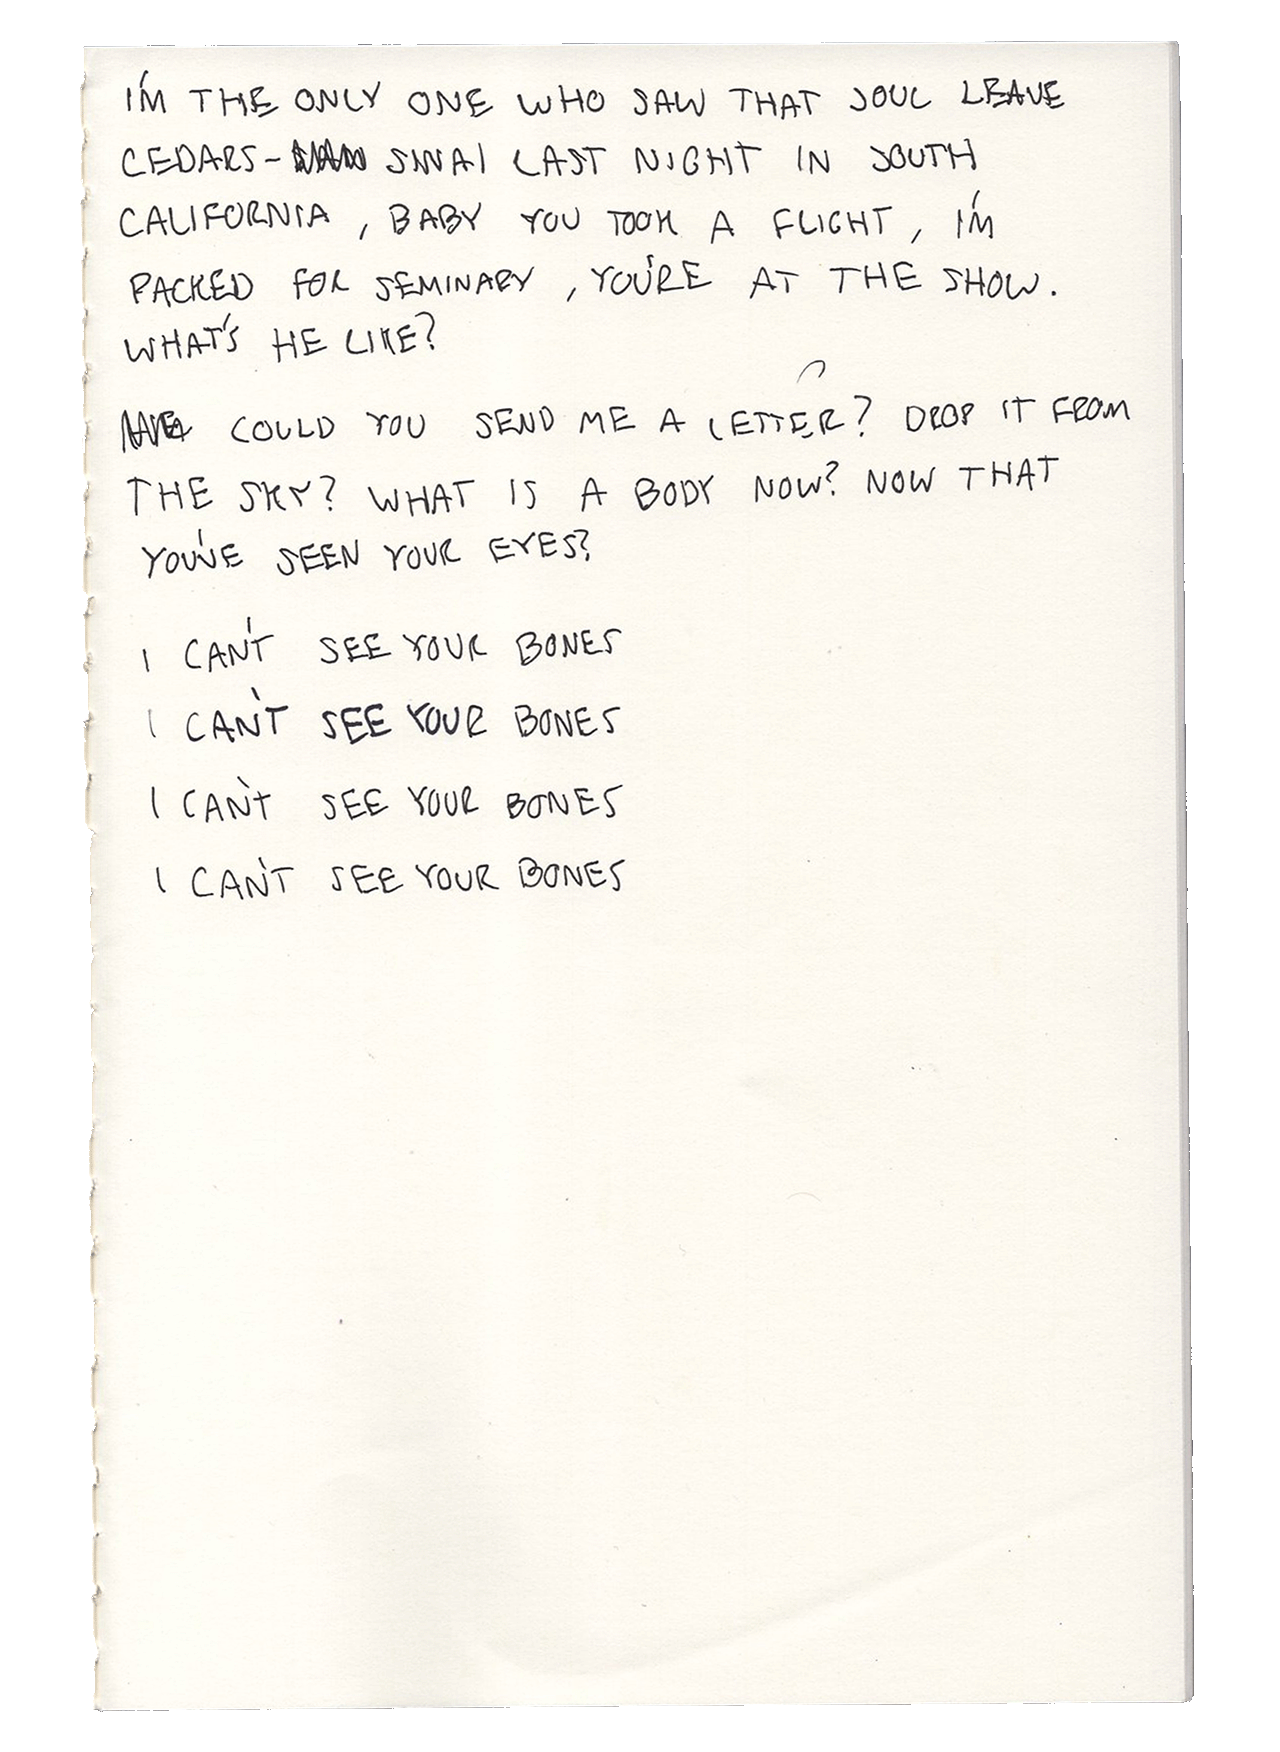 I'M THE ONLY ONE WHO SAW THAT SOUL LEAVE
CEDARS- SINAI LAST NIGHT IN SOUTH
CALIFORNIA, BABY YOU TOOK A FLIGHT, I'M
PACKED FOR SEMINARY, YOU'RE AT THE SHOW.
WHAT'S HE LIKE?
COULD YOU SEND ME A LETTER? DROP IT FROM
THE SKY? WHAT IS A BODY NOW? NOW THAT
YOU'VE SEEN YOUR EYES?
I CAN'T SEE YOUR BONES
I CAN'T SEE YOUR BONES
I CAN'T SEE YOUR BONES
I CAN'T SEE YOUR BONES